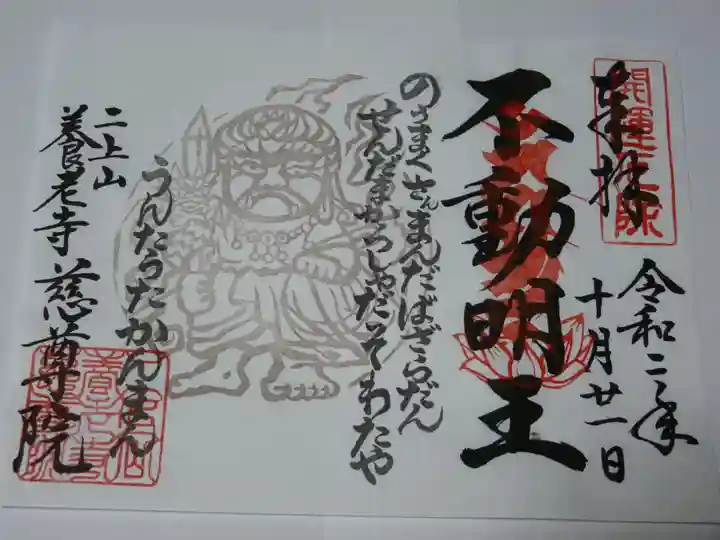 奉拝
開運
令和二年
十月廿一日
不動明王
のうまくさんまんだばざらだん
せんだまかろしゃだそわたや
うんたらたかんまん
二上山
養老寺 慈尊院